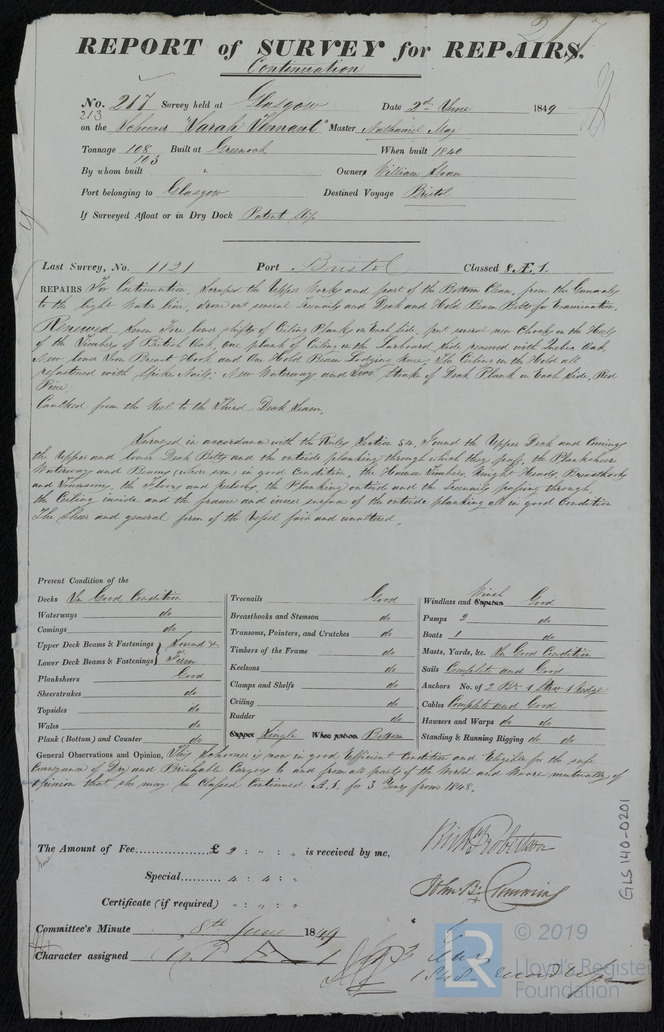 217
REPORT of SURVEY for REPAIRS.
Continuation
No. 217 Survey held at Glasgow Date 2d June 1849
213
on the Schooner "Sarah Tennant" Master Nathaniel May
Tonnage 108 Built at Greenock When built 1840
103
By whom built " Owners William Sloan
Port belonging to Glasgow Destined Voyage Bristol
If Surveyed Afloat or in Dry Dock Patent Slip
Last Survey, No. 1121 Port Bristol Classed Æ 1.
REPAIRS For Continuation, Scraped the Upper Works and part of the Bottom Clean, from the Gunwales
to the light Water line, drove out several Treenails and Deck and Hold Beam Bolts for Examination,
Renewed, Seven Fore lower shifts of Ceiling Plank on Each Side, put several new Chocks on the Heels
of the Timbers of British Oak, one plank of Ceiling on the Larboard Side renewed with Quebec Oak,
New lower Iron Breast Hook and One Hold Beam Lodging Knee; The Ceiling in the Hold all
refastened with Spike Nails; New Waterway and Two Strake of Deck Plank on Each Side, Red
Pine
Caulked from the Keel to the Third Deck Seam.
Surveyed in accordance with the Rules Section 54, Found the Upper Deck and Comings
the Upper and lower Deck Bolts and the outside planking through which they pass, the Planksheer
Waterway and Beams (where seen) in good Condition, the Hawse Timbers, Knight Heads, Breasthooks
and Transoms, the Floors and Keelsons, the Planking outside and the Treenails passing through,
the Ceiling inside and the frame and inner surface of the outside planking all in good Condition
The Sheer and general form of the Vessel fair and unaltered,
Present Condition of the
Decks In Good Condition
Waterways do
Comings do
Upper Deck Beams & Fastenings } Sound &
Lower Deck Beams & Fastenings } Firm
Planksheers Good
Sheerstrakes do
Topsides do
Wales do
Plank (Bottom) and Counter do
Treenails Good
Breasthooks and Stemson do
Transoms, Pointers, and Crutches do
Timbers of the Frame do
Keelsons do
Clamps and Shelfs do
Ceiling do
Rudder do
Copper Single When put on Bottom
Windlass and Capstan Winch Good
Pumps 2 do
Boats 1 do
Masts, Yards, &c. In Good Condition
Sails Complete and Good
Anchors No. of 2 Br 1 Stm 1 Kedge
Cables Complete and Good
Hausers and Warps do do
Standing & Running Rigging do do
General Observations and Opinion, This Schooner is now in good Efficient Condition and Eligible for the safe
Conveyance of Dry and Perishable Cargoes to and from all parts of the World and We are mutually of
opinion that she may be Classed Continued A.1. for 3 Years from 1848.
The Amount of Fee £ 2 : " : " is received by me,
Special 4 : 4 : "
Certificate (if required) " : " : "
John B. Cumming
Committee's Minute 8th June 1849
Character assigned A 1
1848
GLS 140-0201
LR
© 2019
Lloyd's Register
Foundation